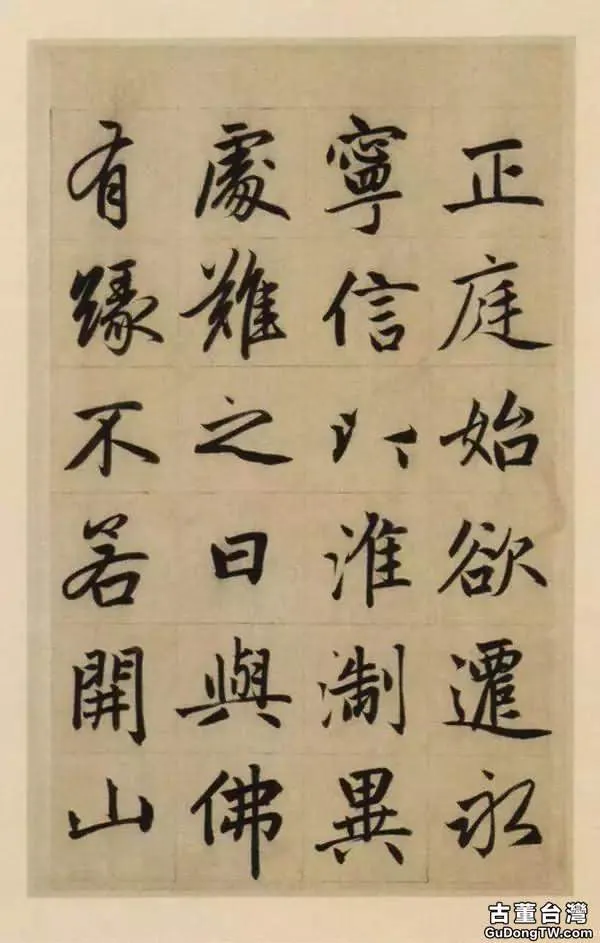 正庭始欲遷永
寧信以淮淛異
處難之曰與佛
有緣不若開山
古董台灣
GuDongTW.com